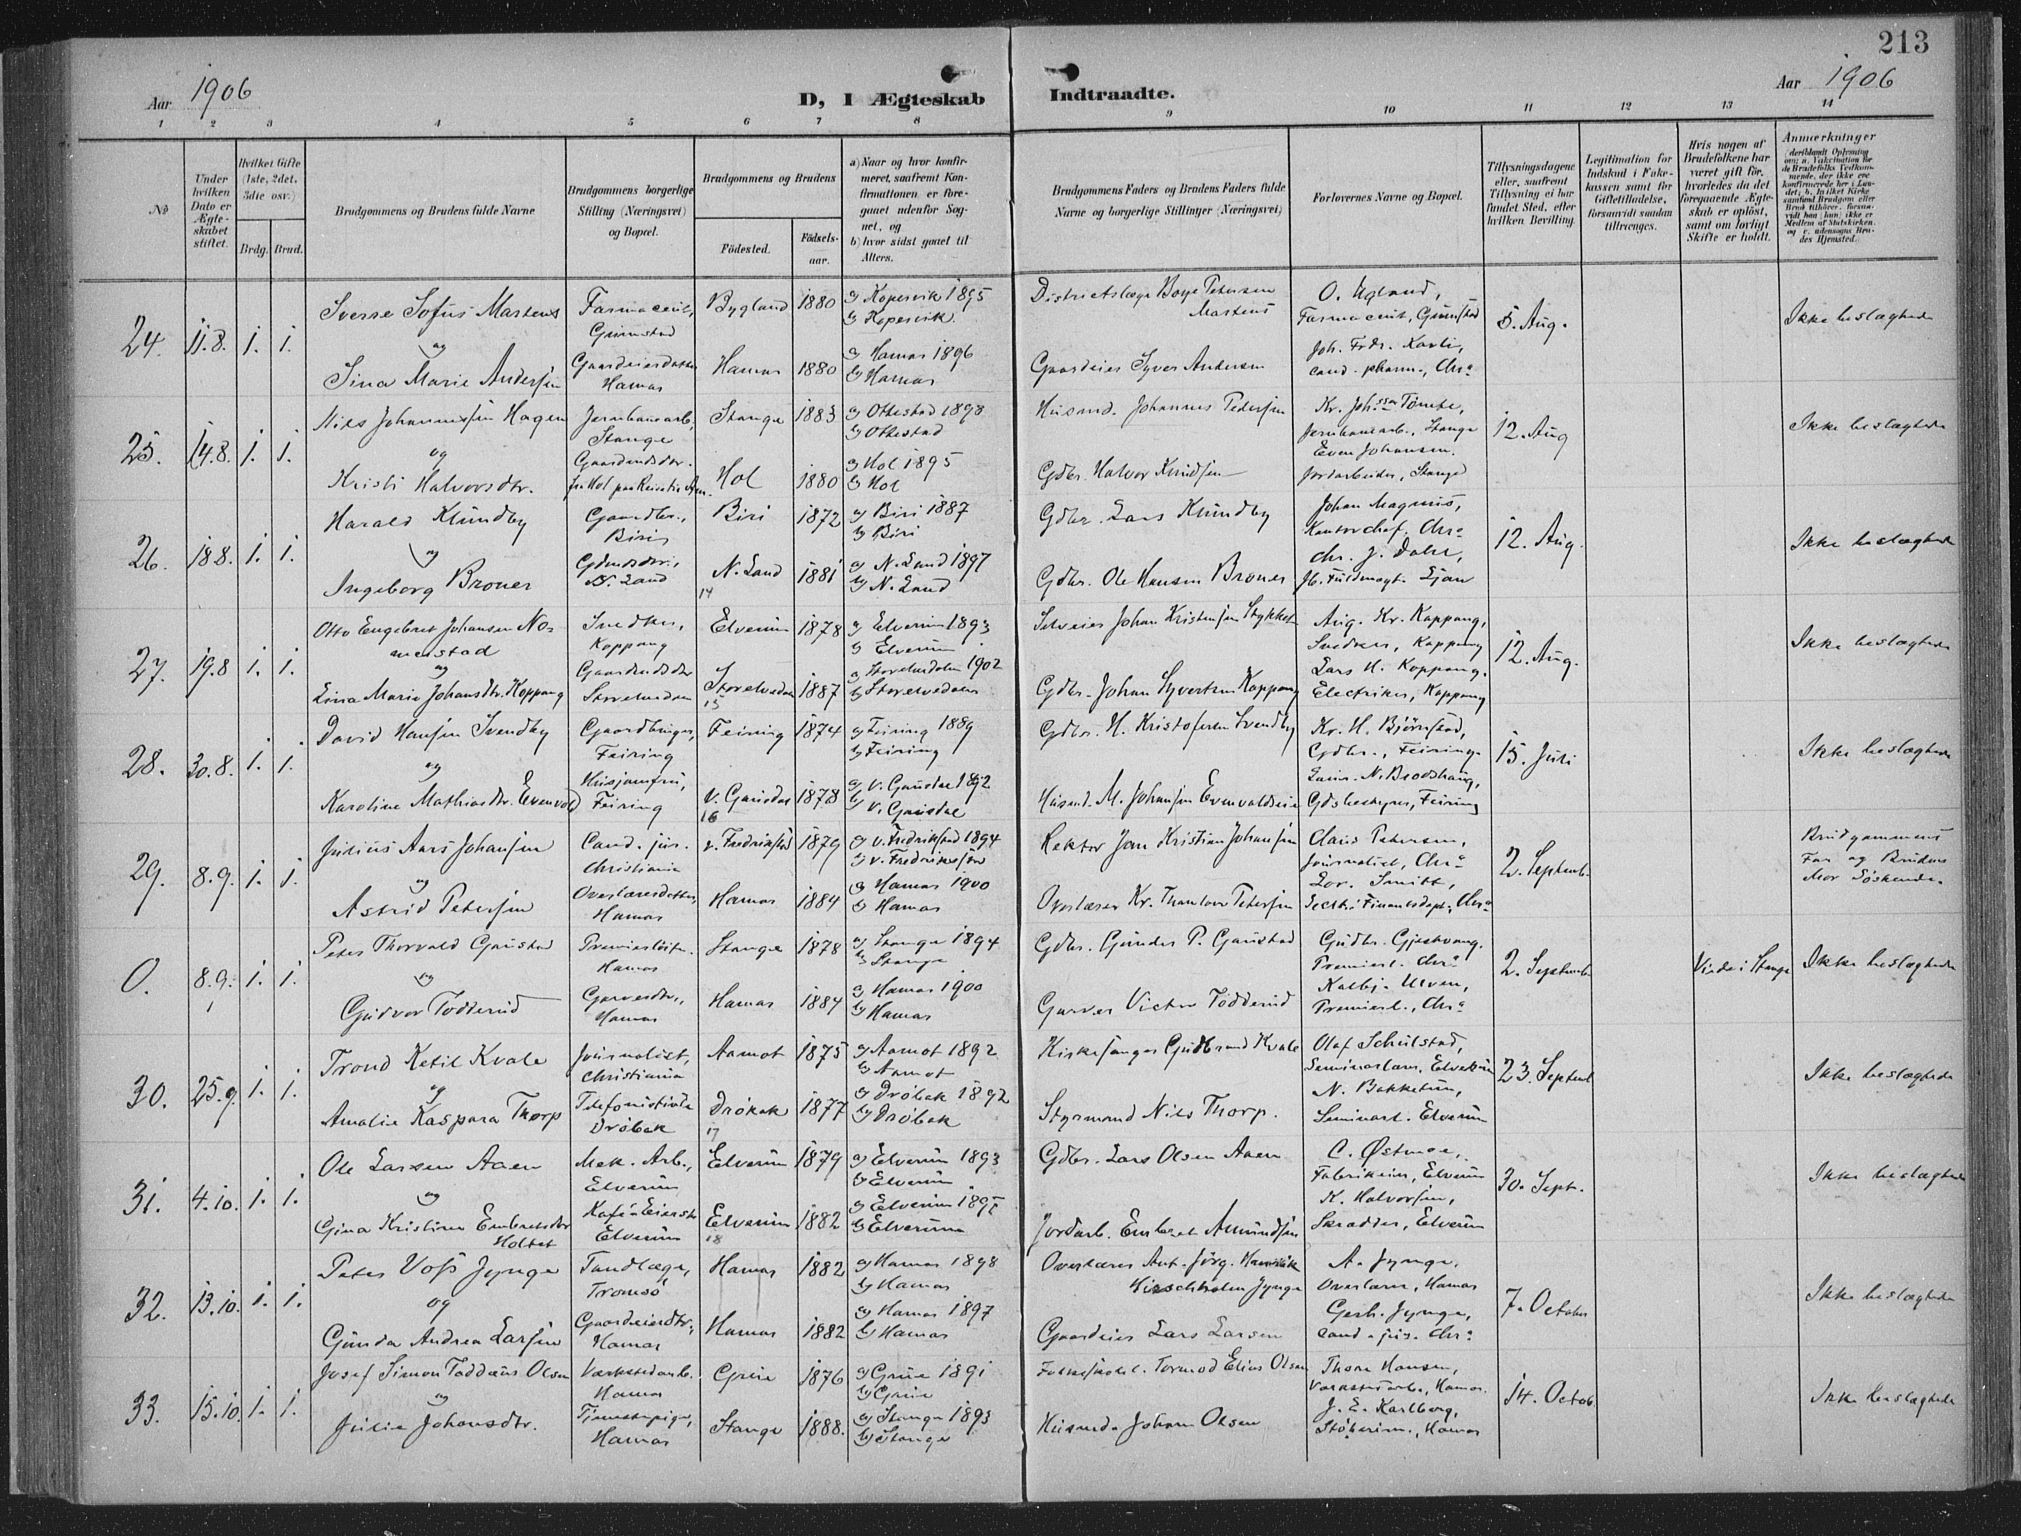 213
Aar 1906
D, I Ægteskab Indtraadte.
Aar 1906
1 2 3 4 5 6 7 8 9 10 11 12 13 14
No
Under hvilken Dato er Ægteskabet stiftet.
Hvilket Gifte (1ste, 2det, 3die osv.)
Brdg. Brud.
Brudgommens og Brudens fulde Navne
Brudgommens borgerlige Stilling (Næringsvei) og Bopæl.
Brudgommens og Brudens
Fødested. Fødselsaar.
a) Naar og hvor konfirmeret, saafremt Konfirmationen er foregaaet udenfor Sognet, og
b) hvor sidst gaaet til Alters.
Brudgommens Faders og Brudens Faders fulde Navne og borgerlige Stillinger (Næringsvei)
Forlovernes Navne og Bopæl.
Tillysningsdagene eller, saafremt Tillysning ei har fundet Sted, efter hvilken Bevilling.
Legitimation for Indskud i Enkekassen samt før Giftetilladelse, forsaavidt saadan tiltrænges.
Hvis nogen af Brudefolkene har været gift før, hvorledes da det foregaaende Ægteskab er opløst, samt om lovligt Skifte er holdt.
Anmærkninger
24. 11.8. 1. 1.
Sverre Sofus Martens
og
Sina Marie Andersen
Farmaceut, Grimstad
Gaardeierdatter Hamar
Bygland 1880
Hamar 1880
a) Kopervik 1895
b) Kopervik.
a) Hamar 1896
b) Hamar
Districtslæge Boye Petersen Martens
Gaardeier Syver Andersen
O. Ugland,
Farmaceut, Grimstad
Joh. Frdr. Karli,
cand. pharm., Chra
5. Aug.
Ikke beslægtede
25. 14.8. 1. 1.
Nils Johannessen Hagen
og
Kristi Halvorsdtr.
Jernbanearb., Stange
Stange 1883
Hol 1880
a) Ottestad 1898
b) Ottestad
a) Hol 1895
b) Hol
Husmd. Johannes Pedersen
Gdbr. Halvor Knudsen
Kr. Johssen Tomte,
Jernbanearb., Stange
Even Johansen.
Jordarbeider, Stange
12. Aug
Ikke beslægtede
26. 18.8. 1. 1.
Harald Klundby
og
Ingeborg Broner
Gaardbr., Biri
N. Land
Biri 1872
N. Land 1881
14
a) Biri 1887
b) Biri
a) N. Land 1897
b) N. Land
Gdbr. Lars Klundby
Gdbr. Ole Hansen Broner
Johan Magnus,
Kontorchef, Chra
Chr. J. Dahl,
12. Aug.
Ikke beslægtede
27. 19.8 1. 1.
Otto Engebret Johansen No-
og
Lina Marie Johansdtr. Koppang
Snedker, Koppang
Gaardmdsdtr Storelvedalen
Elverum 1878
Storelvedalen 1887
15
a) Elverum 1893
b) Elverum
a) Storelvedalen 1902
b) Storelvedalen
Selveier Johan Kristensen Stykket
Gdbr. Johan Syversen Koppang
Aug. Kr. Koppang,
Snedker, Koppang
Lars H. Koppang.
Electriker, Koppang
12. Aug.
Ikke beslægtede
28. 30.8. 1. 1.
David Hansen Svendby
og
Karoline Mathiasdtr. Evenvold
Gaardbruger, Feiring
Husjomfru, Feiring
Feiring 1874
V. Gausdal 1878
16
a) Feiring 1889
b) Feiring
a) V. Gausdal 1892
b) V. Gausdal
Gdbr. H. Kristofersen Svendby
Husmd. M. Johansen Evenvoldseie
Kr. H. Bjørnstad,
Gdbr., Feiring.
Laur. N. Brodshaug,
Gdsbestyrer, Feiring
15. Juli
Ikke beslægtede
29. 8.9. 1. 1.
Julius Aars Johansen
og
Astrid Petersen
Cand. jur. Christiania
Overlærerdatter, Hamar
v. Fredrikstad 1879
Hamar 1884
a) V. Fredrikstad 1894
b) V. Fredrikstad
a) Hamar 1900
b) Hamar
Rektor Jan Kristian Johansen
Overlærer Kr. Thaulow Petersen
Claus Petersen,
Journalist, Chra
Lor. Smitt,
Secr. i Finansdept., Chra
2. Septemb.
Brudgommens Far og Brudens Mor Søskende.
0. 8.9. 1. 1.
Peter Thorvald Gaustad
og
Gudvor Tødderud
Premierløitn. Hamar
Garverdtr., Hamar
Stange 1878
Hamar 1884
a) Stange 1894
b) Stange
a) Hamar 1900
b) Hamar
Gdbr. Gunder P. Gaustad
Garver Victor Tødderud
Gudbr. Gjestvang.
Premierl. Chra
Kolbj. Ulven,
Premierl., Chra
2. Septemb
Viede i Stange
Ikke beslægtede
30. 25.9. 1. 1.
Trond Ketil Kvale
og
Amalie Kaspara Thorp
Journalist, Christiania
Telefonistinde Drøbak
Aamot 1875
Drøbak 1877
17
a) Aamot 1892
b) Aamot
a) Drøbak 1892
b) Drøbak
Kirkesanger Gudbrand Kvale
Styrmand Nils Thorp.
Olaf Schulstad,
Seminarlærer, Elverum
N. Bakketun,
Seminarl. Elverum
23. Septemb
Ikke beslægtede
31. 4.10. 1. 1.
Ole Larsen Aaen
og
Gina Kristine Embretsdtr Holtet
Mek. Arb., Elverum
Kafé-Eierske Elverum
Elverum 1879
Elverum 1882
18
a) Elverum 1893
b) Elverum
a) Elverum 1897
b) Elverum
Gdbr. Lars Olsen Aaen
Jordarb. Embret Amundsen
C. Østmoe,
Fabrikeier, Elverum
K. Halvorsen,
Skrædder, Elverum
30. Sept.
Ikke beslægtede
32. 13.10. 1. 1.
Peter Voss Jynge
og
Gunda Andrea Larsen
Tandlæge, Tromsø
Gaardeierdtr., Hamar
Hamar 1882
Hamar 1882
a) Hamar 1898
b) Hamar
a) Hamar 1897
b) Hamar
Overlærer Ant. Jørg. Henrik Hirschholm Jynge
Gaardeier Lars Larsen
A. Jynge,
Overlærer, Hamar
Gerh. Jynge,
cand. jur. Chra
7. October
Ikke beslægtede
33. 15.10. 1. 1.
Josef Simon Taddæus Olsen
og
Julie Johansdtr.
Værkstedarb. Hamar
Tjenestepige, Hamar
Grue 1876
Stange 1888.
a) Grue 1891
b) Grue
a) Stange 1893
b) Stange
Folkeskolel. Tormod Elias Olsen
Husmd. Johan Olsen
Thore Hansen,
Værkstedarb., Hamar.
J. E. Karlberg,
Støberim., Hamar
14. Octob.
Ikke beslægtede